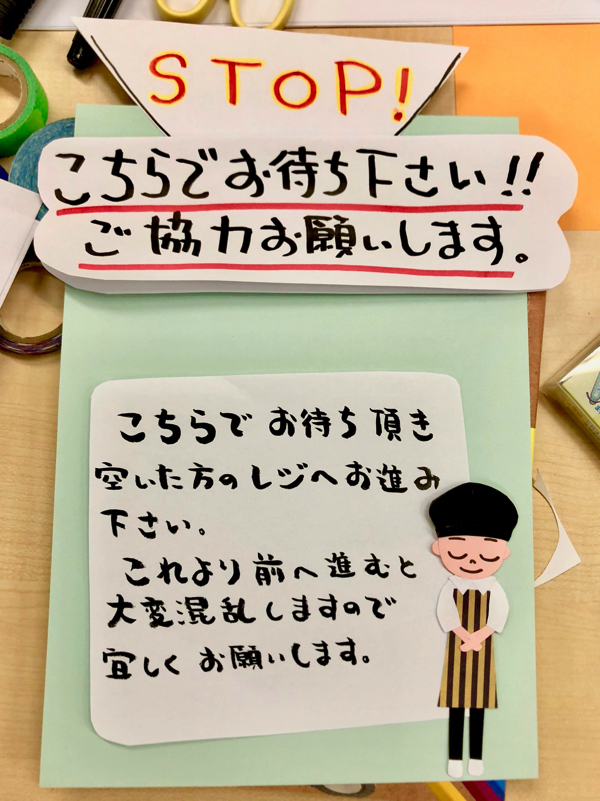 STOP!
こちらでお待ち下さい!!
ご協力お願いします。
こちらで お待ち頂き
空いた方のレジへお進み
下さい。
これより前へ進むと
大変混乱しますので
宜しく お願いします。